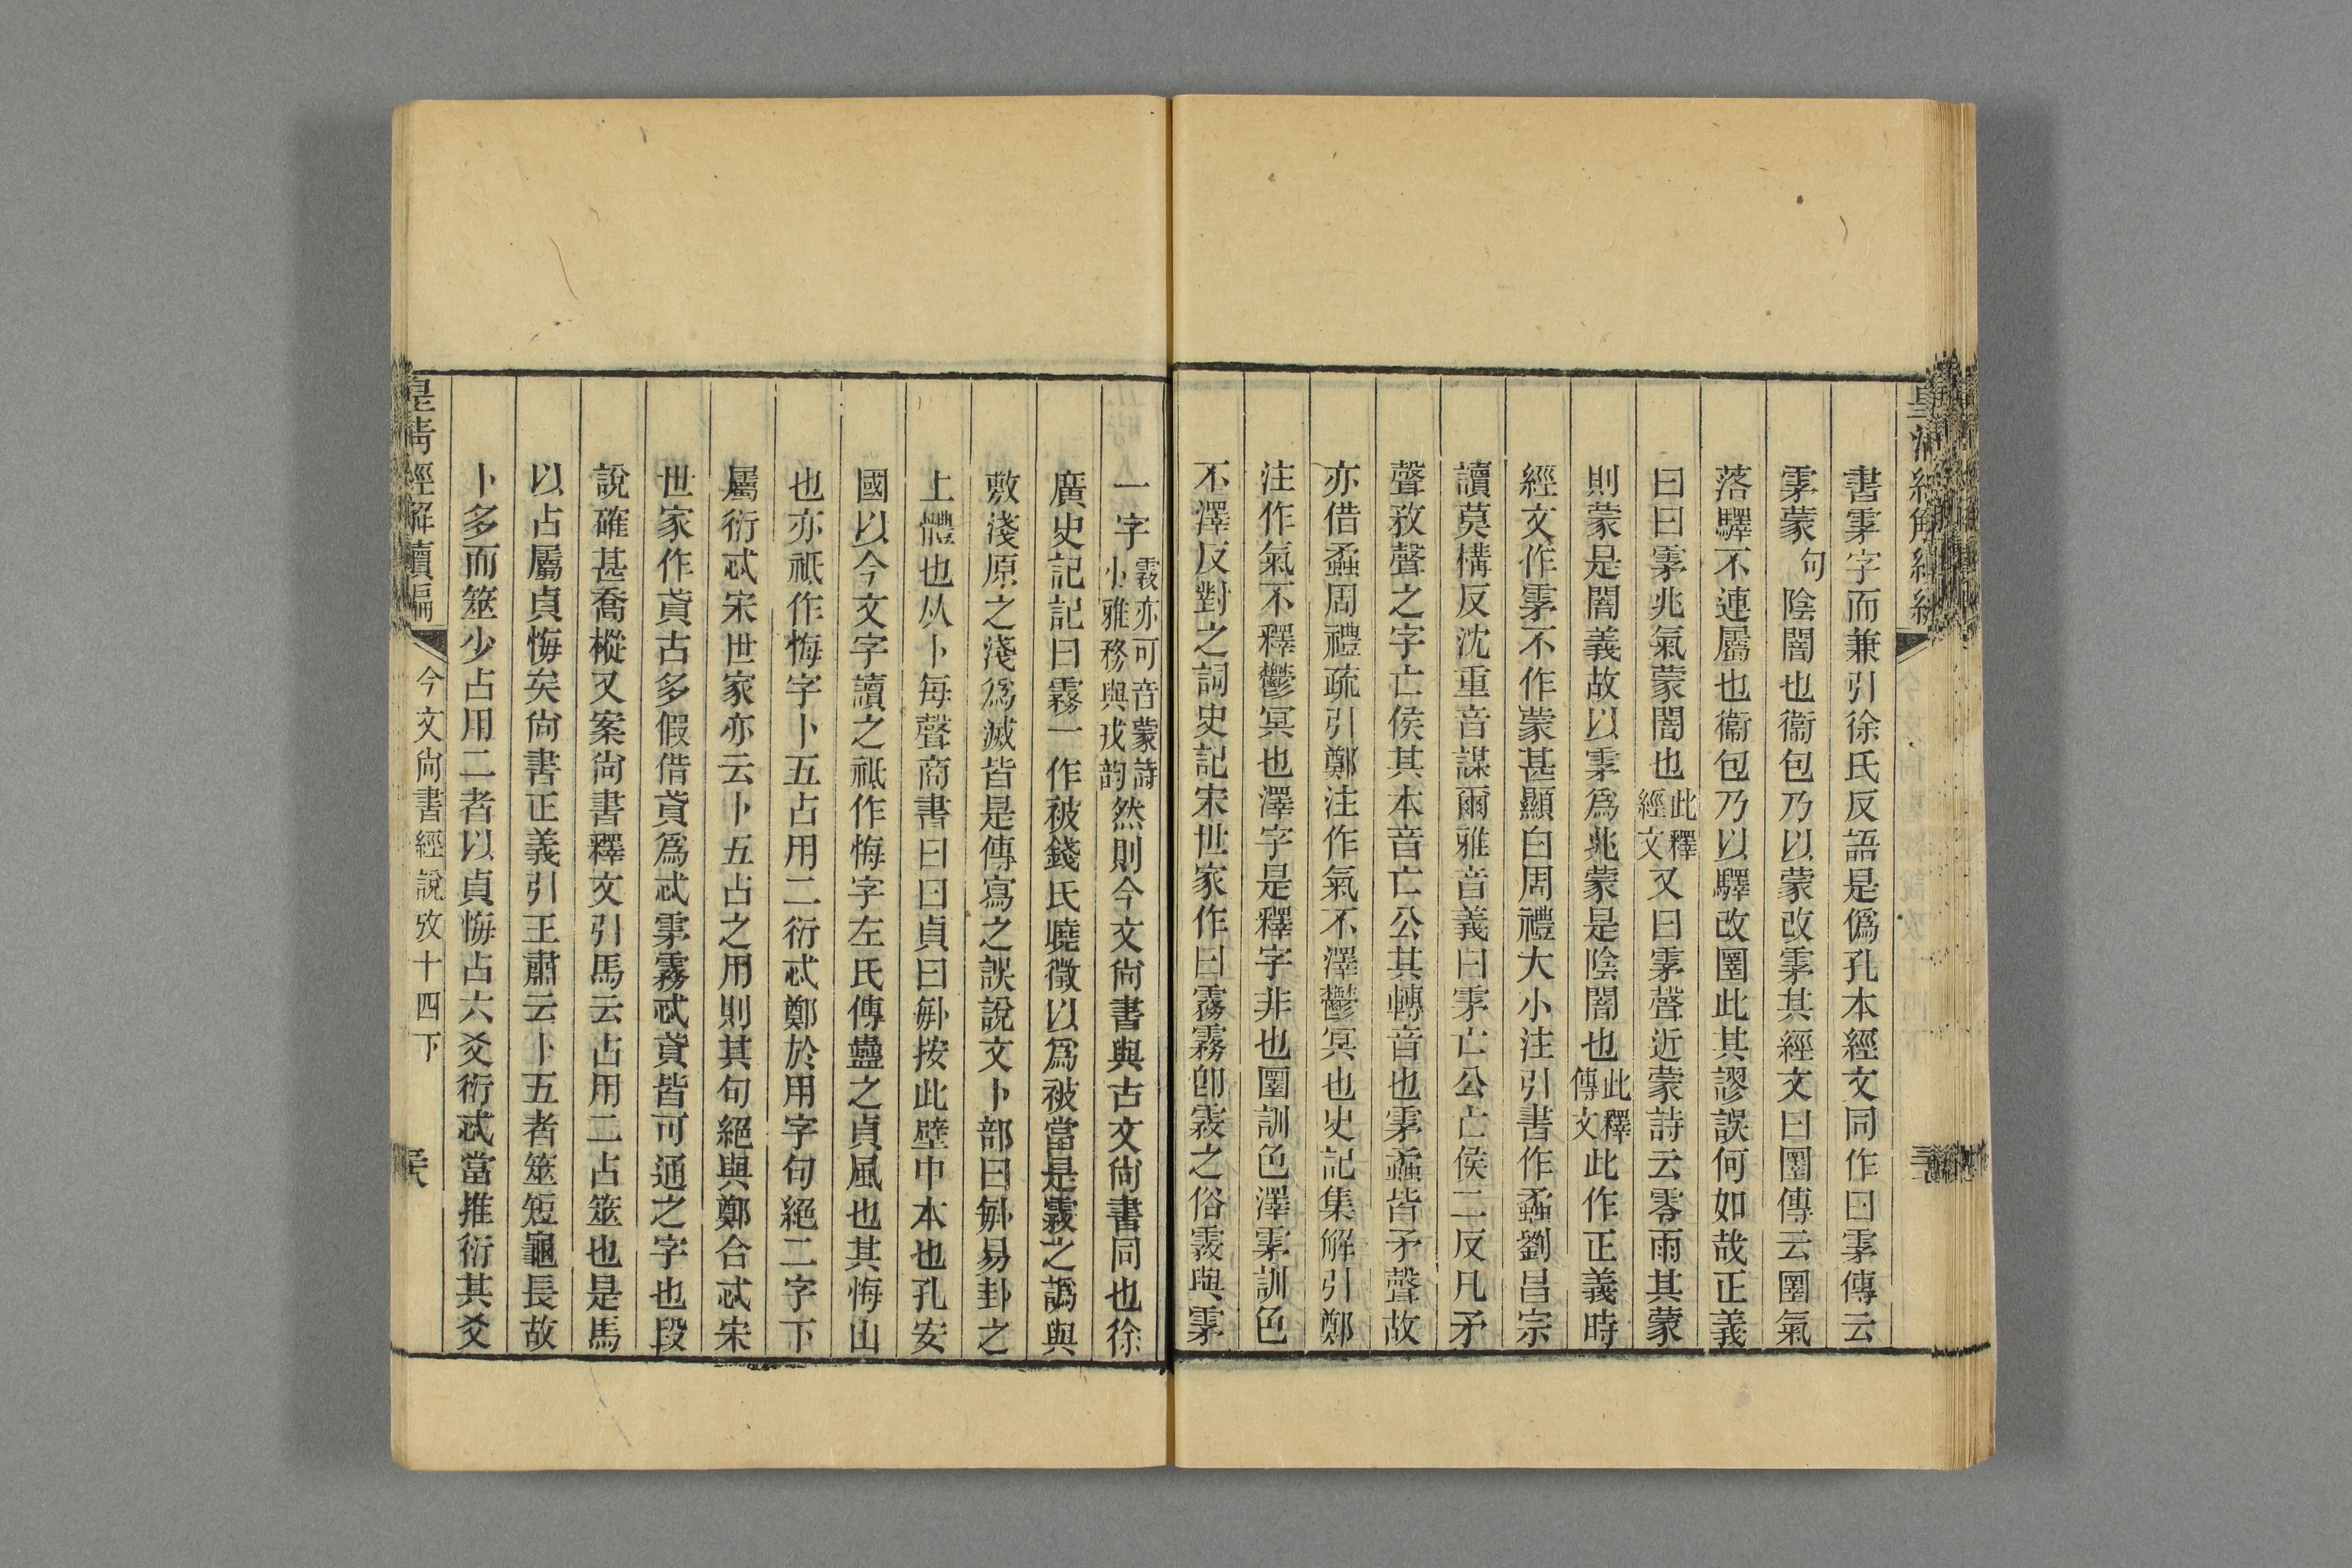 書雺字而兼引徐氏反語是僞孔本經文同作曰雺傳云
雺蒙句陰闇也衞包乃以蒙改雺其經文曰圛傳云圛氣
落驛不連屬也衞包乃以驛改圛此其謬誤何如哉正義
曰曰雺兆氣蒙闇也此釋經文又曰雺聲近蒙詩云零雨其蒙
則蒙是闇義故以雺爲兆蒙是陰闇也此釋傳文此作正義時
經文作雺不作蒙甚顯白周禮大小注引書作蟊劉昌宗
讀莫構反沈重音謀爾雅音義曰雺亡公亡侯二反凡矛
聲敄聲之字亡侯其本音亡公其轉音也雺蟊皆矛聲故
亦借蟊周禮疏引鄭注作氣不澤鬱冥也史記集解引鄭
注作氣不釋鬱冥也澤字是釋字非也圛訓色澤雺訓色
不澤反對之詞史記宋世家作曰霧霧卽霚之俗霚與雺
一字霚亦可音蒙詩小雅務與戎韵然則今文尙書與古文尙書同也徐
廣史記記曰霧一作被錢氏曉徵以爲被當是霚之譌與
敷淺原之淺爲滅皆是傳寫之誤說文卜部曰𠧩易卦之
上體也从卜每聲商書曰曰貞曰𠧩按此壁中本也孔安
國以今文字讀之祗作悔字左氏傳蠱之貞風也其悔山
也亦祗作悔字卜五占用二衍忒鄭於用字句絕二字下
屬衍忒宋世家亦云卜五占之用則其句絕與鄭合忒宋
世家作貣古多假借貣爲忒雺霧忒貣皆可通之字也段
說確甚喬樅又案尙書釋文引馬云占用二占筮也是馬
以占屬貞悔矣尙書正義引王肅云卜五者筮短龜長故
卜多而筮少占用二者以貞悔占六爻衍忒當推衍其爻
皇清經解續編
今文尙書經說攷十四下